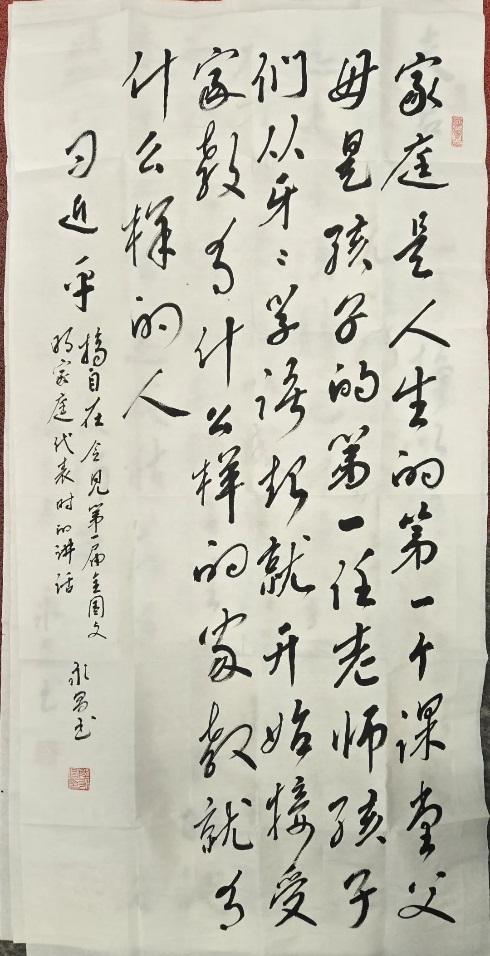 家庭是人生的第一个课堂父
母是孩子的第一任老师孩子
们从牙々学语起就开始接受
家教有什么样的家教就有
什么样的人
习近平
摘自在会见第一届全国文
明家庭代表时的讲话
永昌书